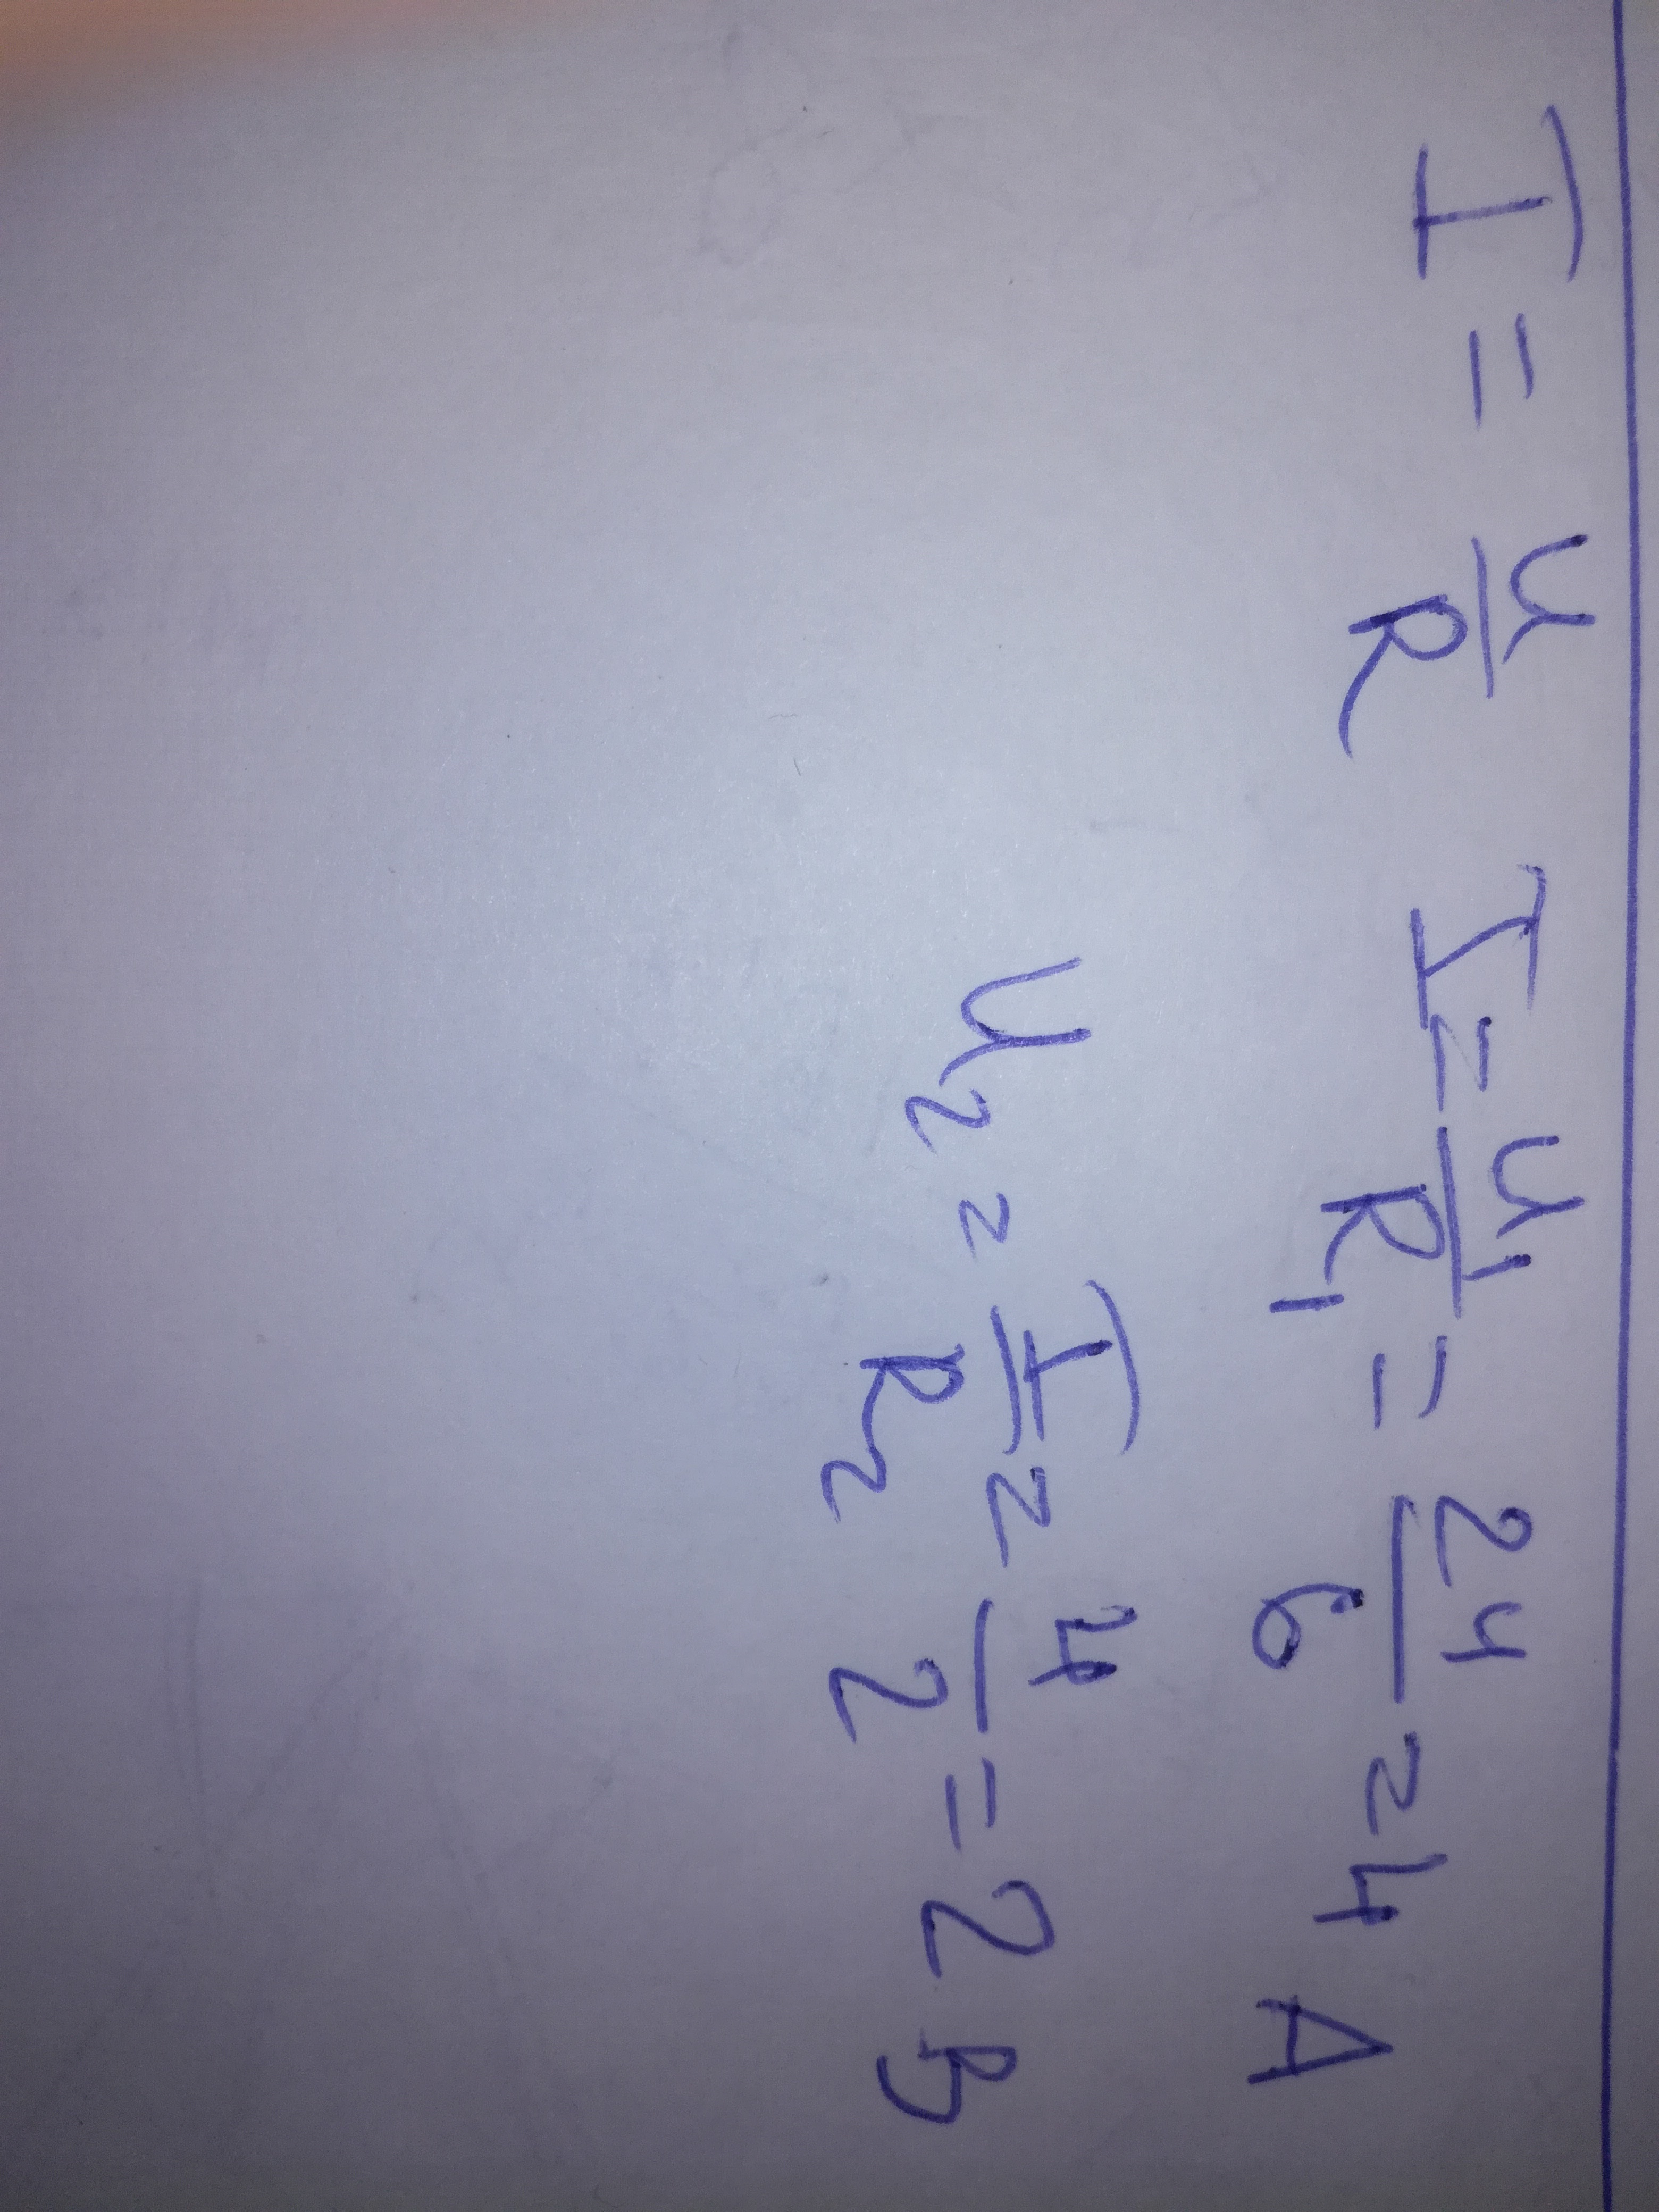 I = U/R I = U₁/R₁ = 24/6 = 4 A
U₂ = I/R₂ = 4/2 = 2 В